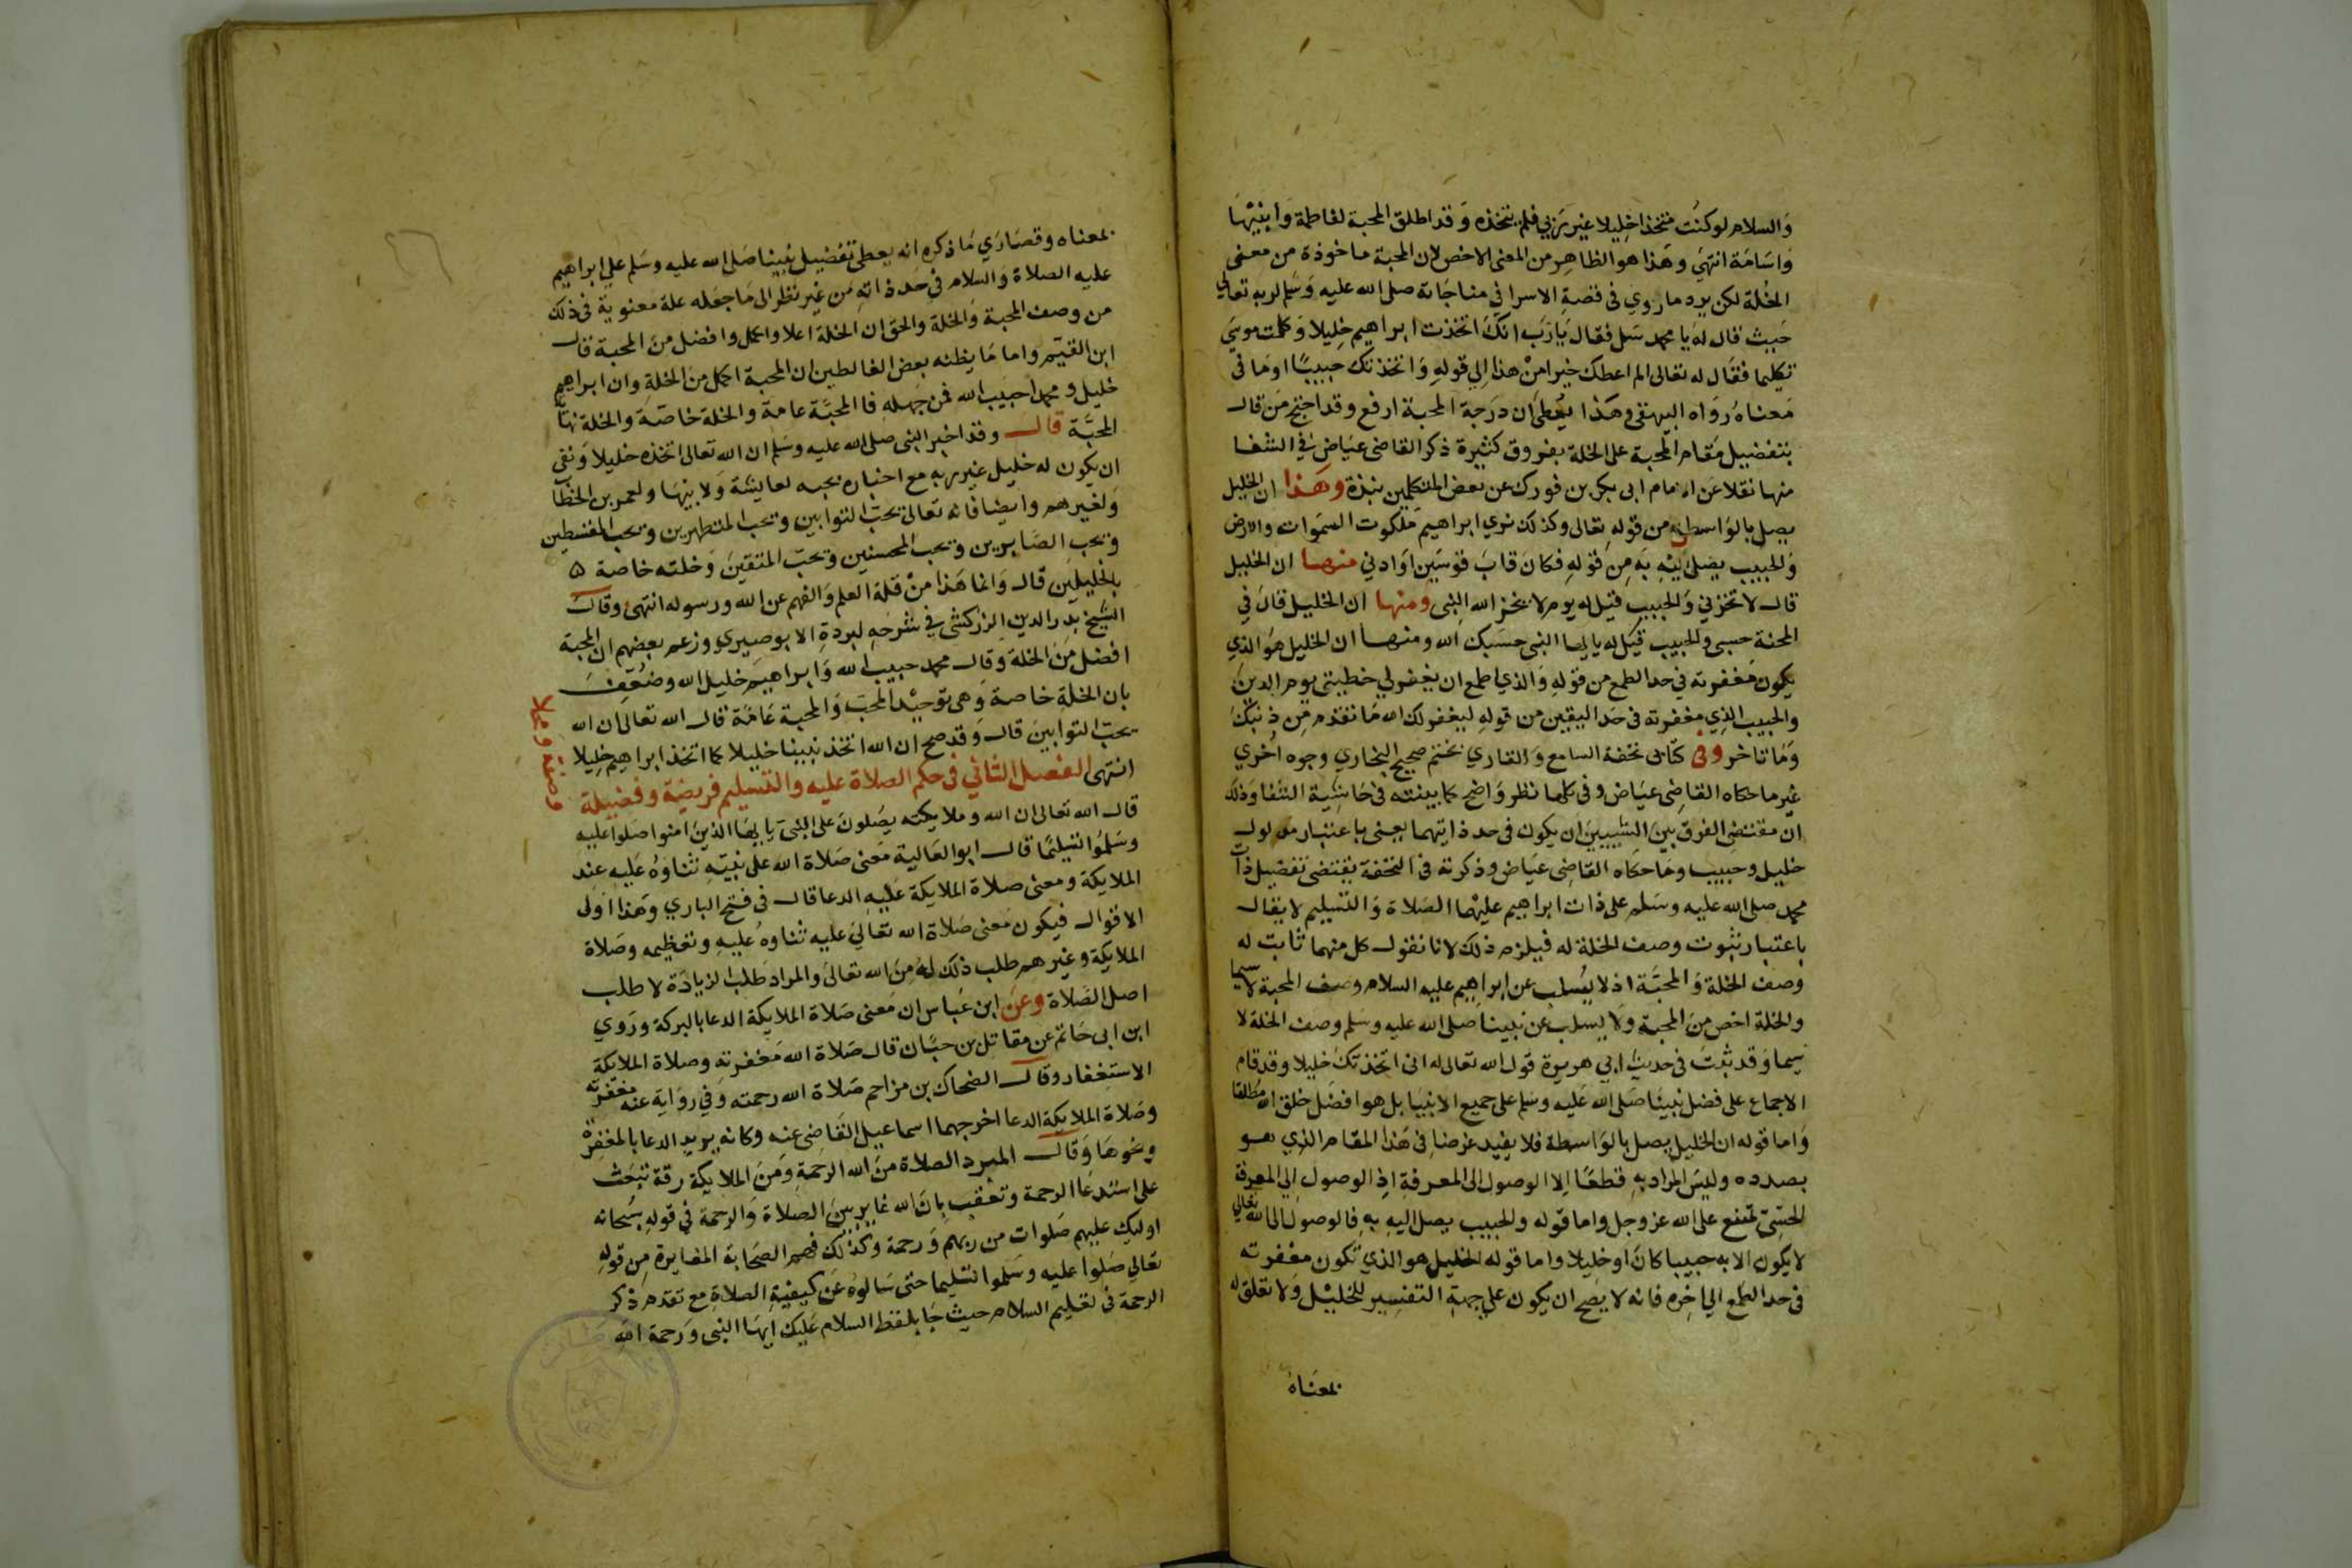 والسلام لو كنت متخذا خليلا غير ربي فلم يتخذه وقد اطلق المحبة لفاطمة وابنيها
واسامة انتهي وهذا هو الظاهر من المعنى الاخص لان المحبة ماخوذة من معنى
الخلة لكن يرد ما روي في قصة الاسرا في مناجاته صلى الله عليه وسلم لربه تعالي
حيث قال له يا محمد سل فقال يا رب انك اتخذت ابراهيم خليلا وكلمت موسي
تكليما فقال له تعالى الم اعطك خيرا من هذا إلي قوله واتخذتك حبيبًا او ما في
معناه رواه البيهقى وهذا يعطي ان درجة المحبة ارفع وقد احتج من قال
بتفضيل مقام المحبة على الخلة بفروق كثيرة ذكر القاضى عياض في الشفا
منها نقلا عن الامام ابى بكر بن فورك عن بعض المتكلمين نبذة وهذا ان الخليل
يصل بالواسطة من قوله تعالى وكذلك نري ابراهيم ملكوت السموات والارض
والحبيب يصل اليه به من قوله فكان قاب قوسين او ادني منها ان الخليل
قال لا تخزني والحبيب قيل له يوم لا يخز الله النبى ومنها ان الخليل قال في
المحنة حسبى والحبيب قيل له يا ايها النبى حسبك الله ومنها ان الخليل هو الذي
يكون مغفرته في حد الطمع من قوله والذي اطمع ان يغفر لي خطيتى يوم الدين
والحبيب الذي مغفرته فى حد اليقين من قوله ليغفر لك الله ما تقدم من ذنبك
وما تاخر وفى كتابى تحفة السامع والقاري بختم صحيح البخاري وجوه اخري
غير ما حكاه القاضى عياض وفى كلها نظر واضح كما بينته فى حاشية الشفا وذلك
ان مقتضى الفرق بين الشييين ان يكون فى حد ذاتيهما يعنى باعتبار مدلول
خليل وحبيب وما حكاه القاضى عياض وذكرته فى التحفة يقتضى تفضيل ذات
محمد صلى الله عليه وسلم على ذات ابراهيم عليهما الصلاة والتسليم لا يقال
باعتبار ثبوت وصف الخلة له فيلزم ذلك لانا نقول كل منهما ثابت له
وصف الخلة والمحبة اذ لا يسلب عن ابراهيم عليه السلام وصف المحبة لا سيما
والخلة اخص من المحبة ولا يسلب عن نبينا صلى الله عليه وسلم وصف الخلة لا
سيما وقد ثبت فى حديث ابي هريرة قول الله تعالى له انى اتخذتك خليلا وقد قام
الاجماع على فضل نبينا صلى الله عليه وسلم على جميع الانبيا بل هو افضل خلق الله مطلقا
واما قوله ان الخليل يصل بالواسطة فلا يفيد غرضا فى هذا المقام الذي هو
بصدده وليس المراد به قطعًا إلا الوصول الى المعرفة إذ الوصول إلي المعرفة
الحسى ممتنع على الله عز وجل واما قوله والحبيب يصل اليه به فالوصول الى الله تعالي
لا يكون الا به حبيبا كان او خليلا واما قوله الخليل هو الذي تكون مغفرته
فى حد الطمع الي اخره فانه لا يصح ان يكون على جهة التفسير للخليل ولا تعلق له
بمعناه
بمعناه وقصاري ما ذكره انه يعطى تفضيل نبينا صلى الله عليه وسلم علي ابراهيم
عليه الصلاة والسلام في حد ذاته من غير نظر الى ما جعله علة معنوية فى ذلك
من وصف المحبة والخلة والحق ان الخلة اعلا واكمل وافضل من المحبة قال
ابن القيم واما ما يظنه بعض الغالطين ان المحبة اكمل من الخلة وان ابراهيم
خليل ومحمدا حبيب الله فمن جهله فا المحبة عامة والخلة خاصة والخلة نهاية
المحبة قال وقد اخبر النبى صلى الله عليه وسلم ان الله تعالى اتخذه خليلا ونفى
ان يكون له خليل غير ربه مع اخباره بحبه لعايشة ولابيها ولعمر بن الخطاب
ولغيرهم وايضا فانه تعالى يحب التوابين ويحب المتطهرين ويحب المقسطين
ويحب الصابرين ويحب المحسنين ويحب المتقين وخلته خاصة
بالخليلين قال وانما هذا من قلة العلم والفهم عن الله ورسوله انتهى وقال
الشيخ بدر الدين الزركشى في شرحه لبردة الابوصيري وزعم بعضهم ان المحبة
افضل من الخلة وقال محمد حبيب الله وابراهيم خليل الله وضعف
بان الخلة خاصة وهى توحيد المحب والمحبة عامة قال الله تعالى ان الله
يحب التوابين قال وقد صح ان الله اتخذ نبينا خليلا كما اتخذ ابراهيم خليلا
انتهى الفصل الثاني فى حكم الصلاة عليه والتسليم فريضة وفضيلة
قال الله تعالى ان الله وملايكته يصلون على النبى يا ايها الذين امنوا صلوا عليه
وسلموا تسليما قال ابو العالية معنى صلاة الله على نبيه ثناوه عليه عند
الملايكة ومعنى صلاة الملايكة عليه الدعا قال فى فتح الباري وهذا اولى
الاقوال فيكون معنى صلاة الله تعالي عليه ثناوه عليه وتعظيمه وصلاة
الملايكة وغيرهم طلب ذلك له من الله تعالى والمراد طلب الزيادة لا طلب
اصل الصلاة وعن ابن عباس ان معنى صلاة الملايكة الدعا بالبركة وروي
ابن ابى حاتم عن مقاتل بن حبان قال صلاة الله مغفرته وصلاة الملايكة
الاستغفار وقال الضحاك بن مزاحم صلاة الله رحمته وفي رواية عنه مغفرته
وصلاة الملايكة الدعا اخرجهما اسماعيل القاضى عنه وكانه يريد الدعا بالمغفرة
ونحوها وقال المبرد الصلاة من الله الرحمة ومن الملايكة رقة تبعث
على استدعا الرحمة وتعقب بان الله غاير بين الصلاة والرحمة في قوله سبحانه
اوليك عليهم صلوات من ربهم ورحمة وكذلك فهم الصحابة المغايرة من قوله
تعالي صلوا عليه وسلموا تسليما حتى سالوه عن كيفية الصلاة مع تقدم ذكر
الرحمة فى تعليم السلام حيث جا بلفظ السلام عليك ايها النبى ورحمة الله